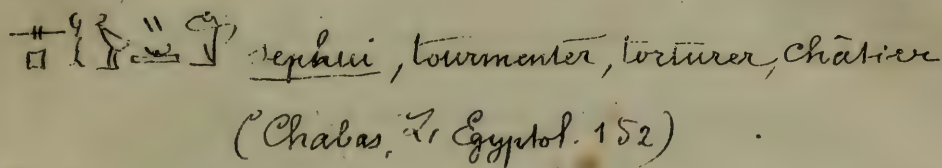 sephui, tourmenter, torturer, châtier
(Chabas, Egyptol. 152)